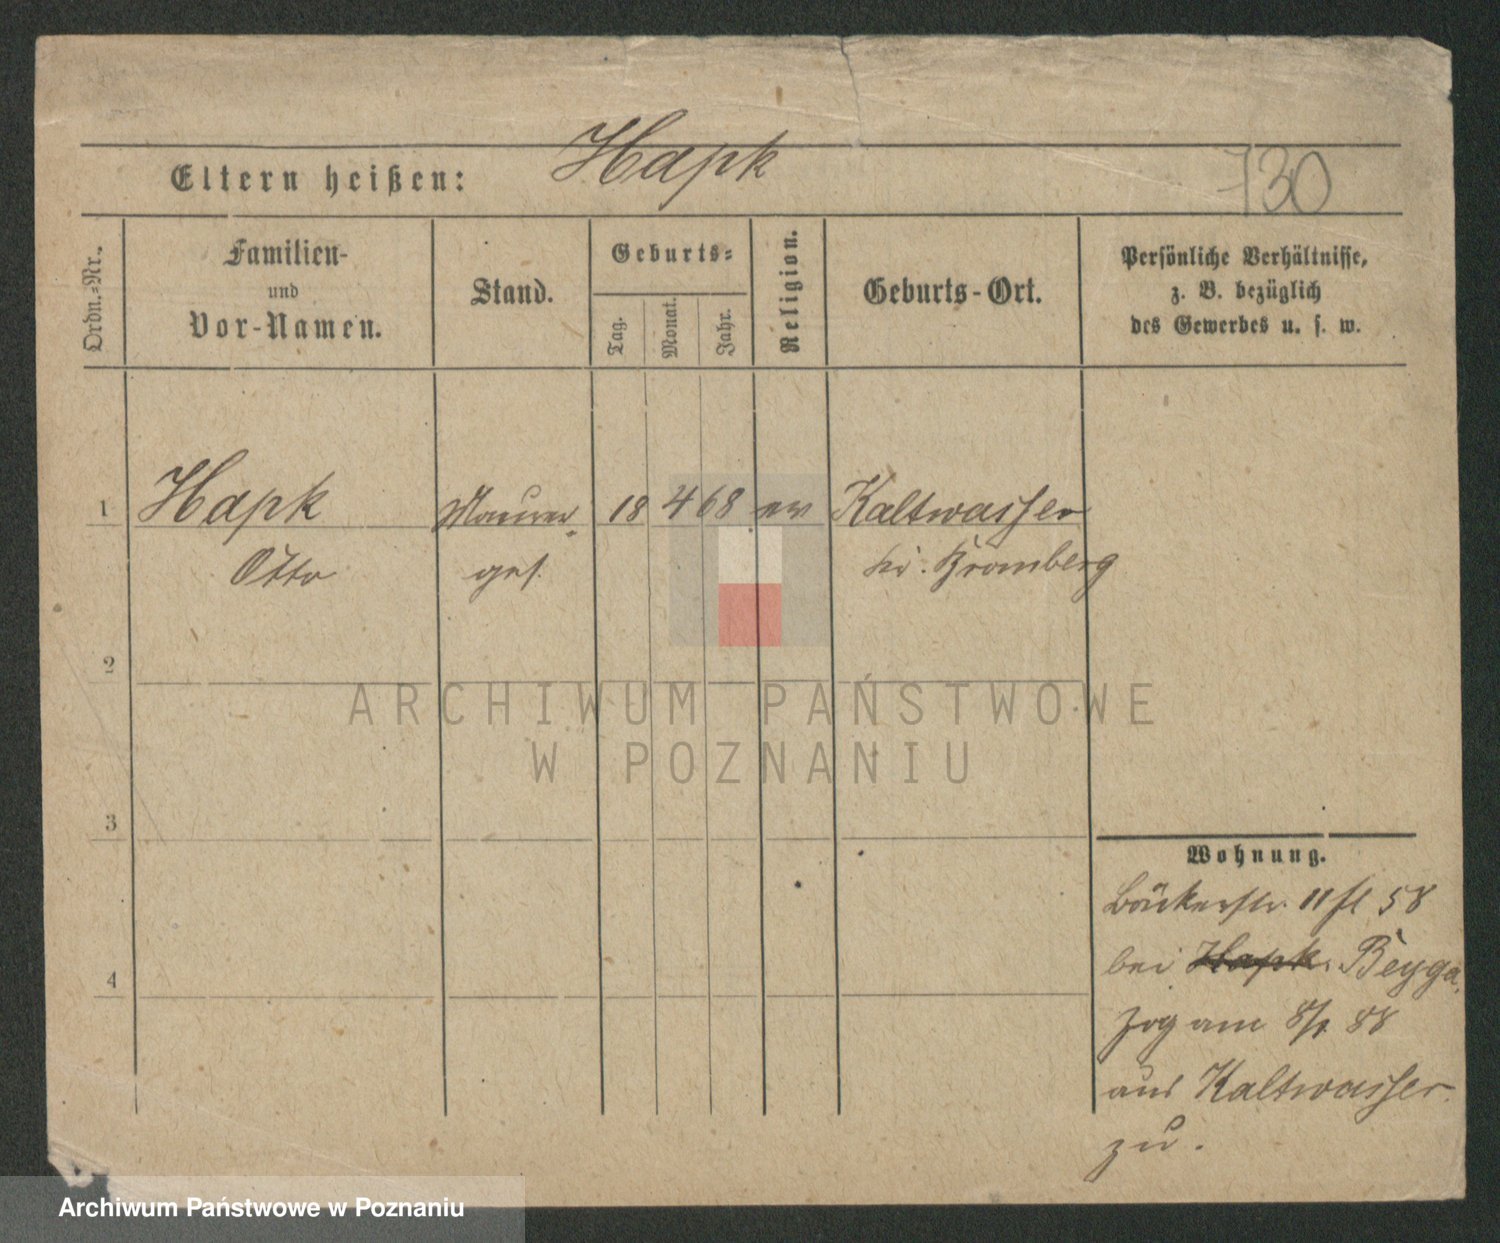 Hapk
Eltern heißen:
730
Ordn.-Nr.
Familien-
und
Vor-Namen.
Stand.
Geburts-
Tag.
Monat.
Jahr.
Religion.
Geburts-Ort.
Persönliche Verhältnisse,
z. B. bezüglich
des Gewerbes u. s. w.
1 Hapk Maurer- 18 4 68 ev Kaltwasser
Otto ges. Kr. Bromberg
2
ARCHIWUM PAŃSTWOWE
W POZNANIU
3
Wohnung.
Bäckerstr. 11
bei Hapk. Beyga,
Zog am 88
aus Kaltwasser.
zu.
4
Archiwum Państwowe w Poznaniu